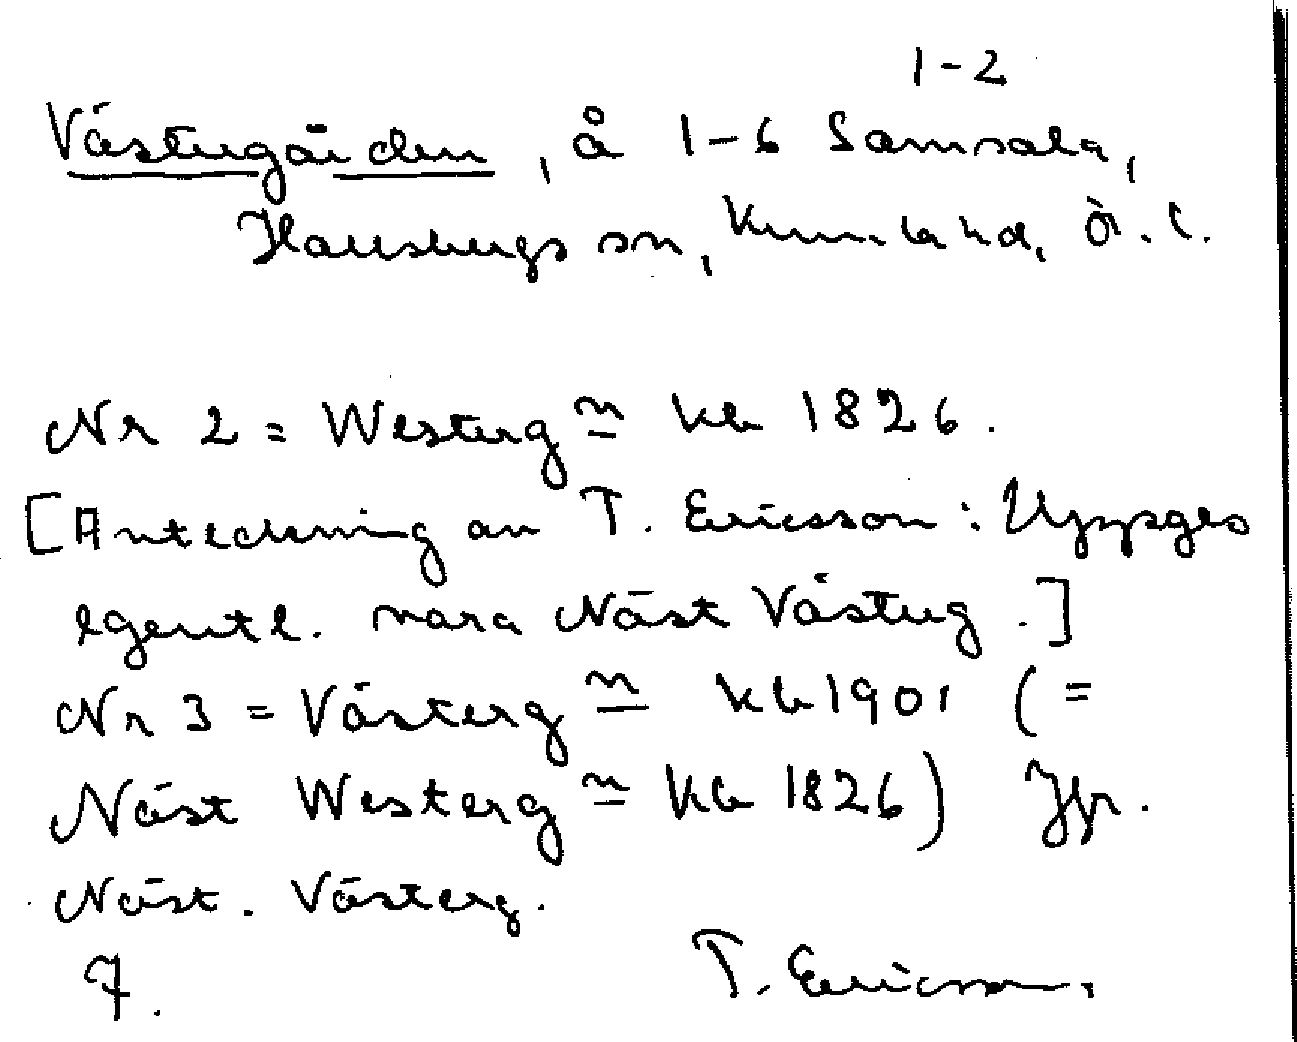 1-2
Västergården, å 1-6 Samsala,
Hallsbergs sn, Kumla hd, Ö.L.
Nr 2 = Westergn kb 1826.
[Anteckning av T. Ericsson: Uppges
egentl. vara Näst Västerg.]
Nr 3 = Västergn kb 1901 (=
Näst Westergn kb 1826) Jfr.
Näst. Västerg.
T. Ericsson.